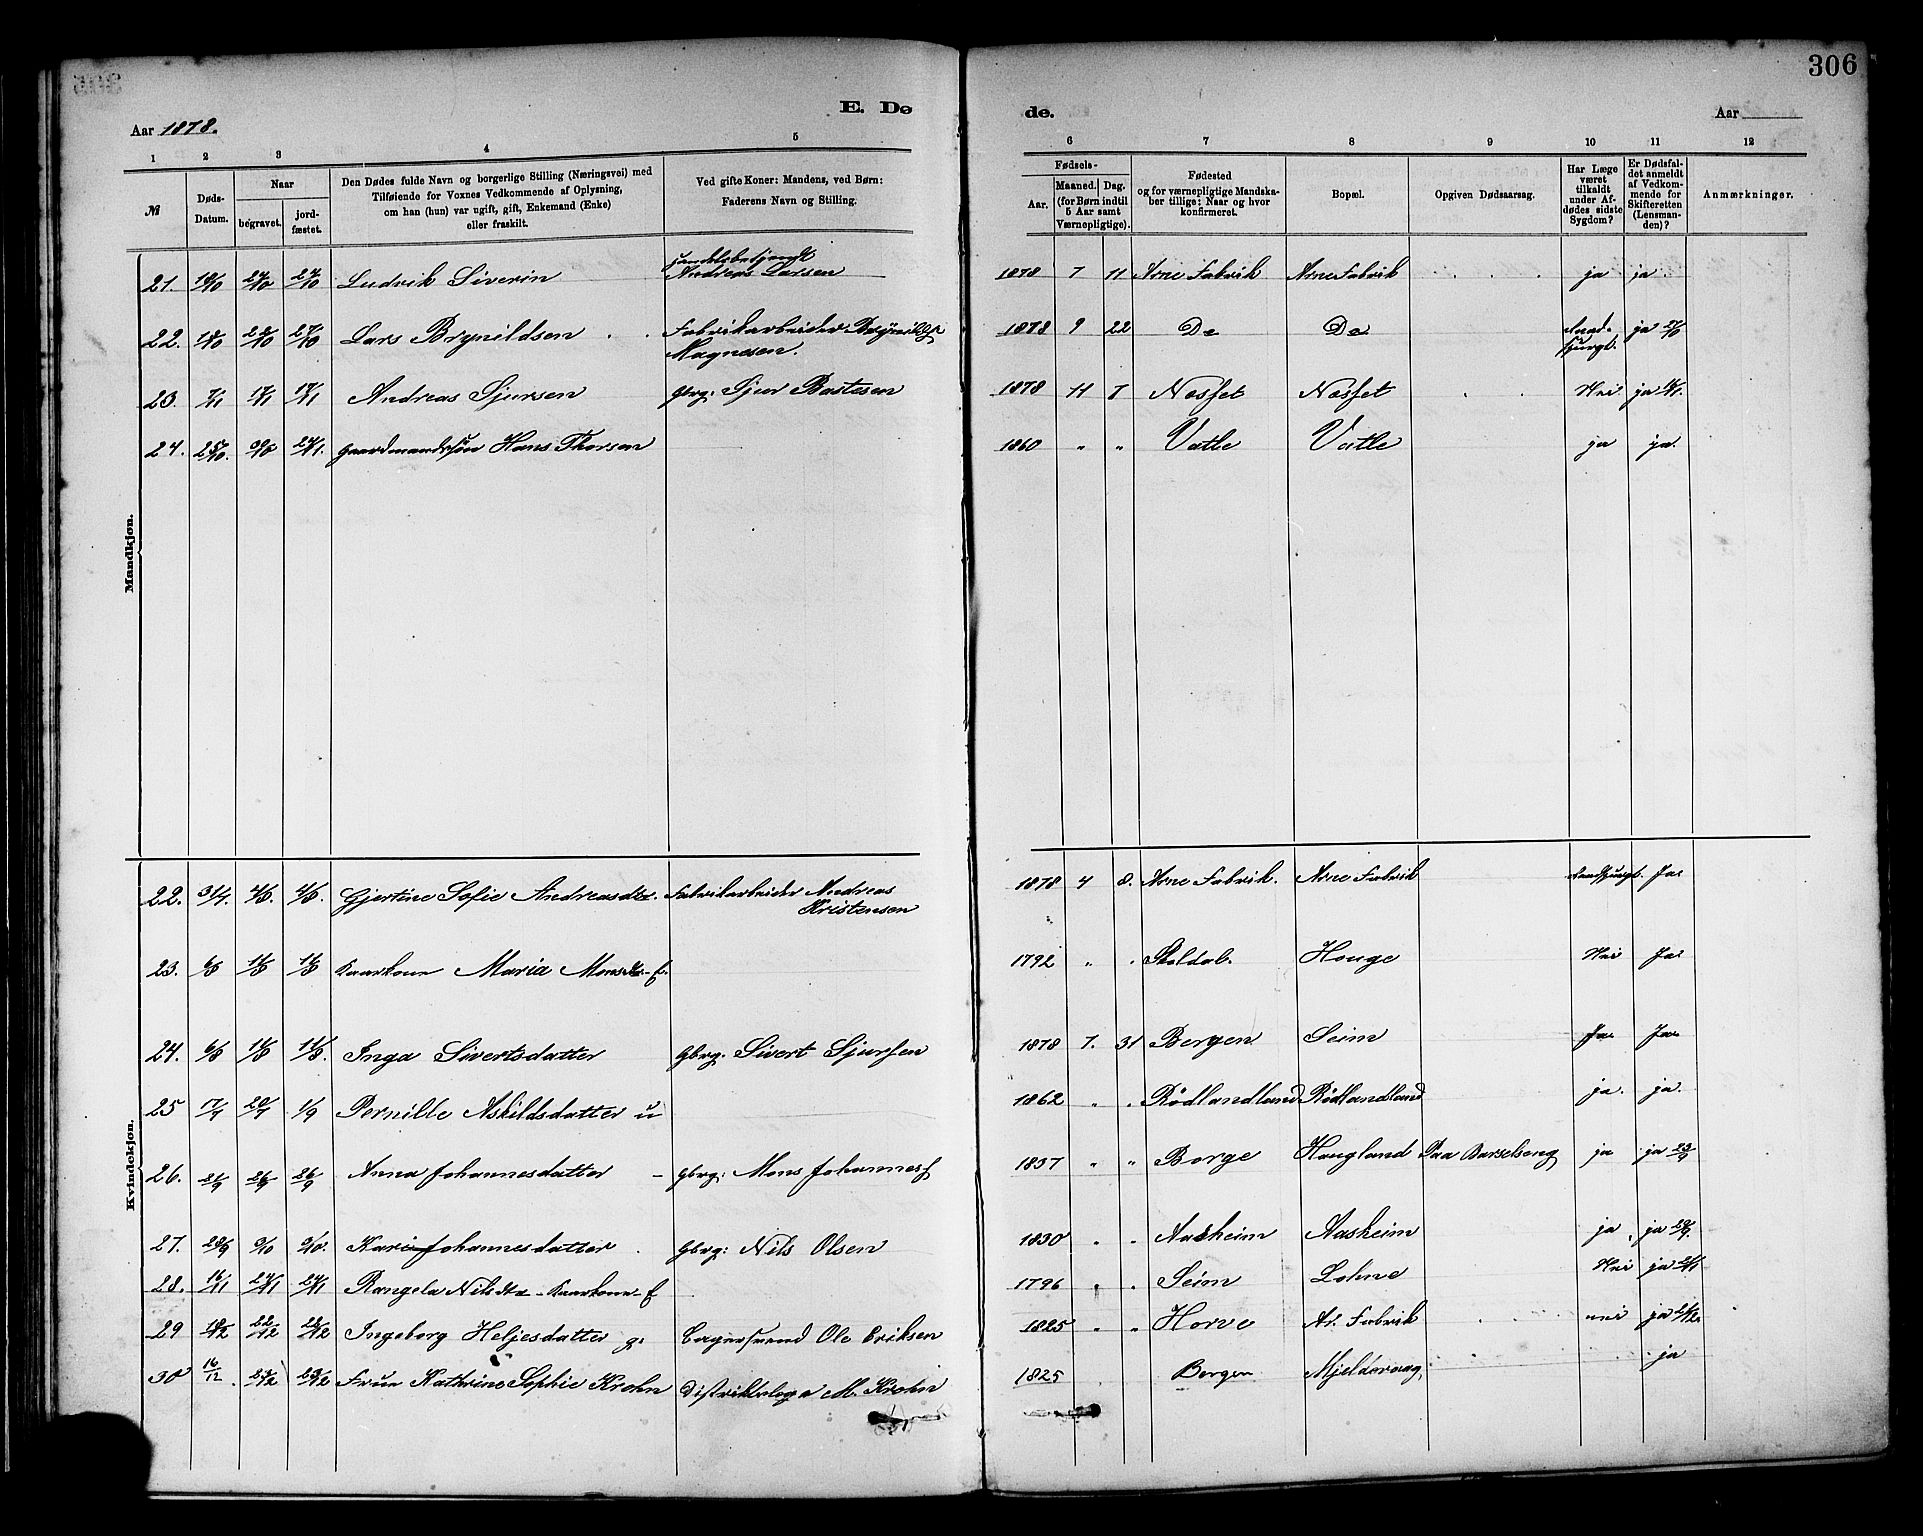 306
E. Dø
de.
Aar 1878.
Aar
1 2 3 4 5 6 7 8 9 10 11 12
№
Døds-Datum.
Naar
begravet.
jord-fæstet.
Den Dødes fulde Navn og borgerlige Stilling (Næringsvei) med
Tilføiende for Voxnes Vedkommende af Oplysning,
om han (hun) var ugift, gift, Enkemand (Enke)
eller fraskilt.
Ved gifte Koner: Mandens, ved Børn:
Faderens Navn og Stilling.
Fødsels-
Aar.
Maaned. Dag.
(for Børn indtil
5 Aar samt
Værnepligtige).
Fødested
og for værnepligtige Mandska-
ber tillige: Naar og hvor
konfirmeret.
Bopæl.
Opgiven Dødsaarsag.
Har Læge
været
tilkaldt
under Af-
dødes sidste
Sygdom?
Er Dødsfal-
det anmeldt
af Vedkom-
mende for
Skifteretten
(Lensman-
den)?
Anmærkninger.
Mandkjøn.
21. Ludvik Siverin Andreas Larsen 1878 7 11 Arne Fabrik Arne Fabrik ja ja
22. Lars Brynildsen Fabrikarbeider Brynild
Magnesen. 1878 9 22 Do Do ja
23. Andreas Sjursen Gbrg: Sjur Bastesen 1878 11 7 Nesset Nesset Nei ja
24. Gaardmandssøn Hans Thorsen 1860 " " Vatle Vatle ja ja.
Kvindekjøn.
22. 31/7. Gjertine Sofie Andreasdtr. Fabrikarbeider Andreas
Kristensen 1878 4 8. Arne Fabrik. Arne Fabrik Ja
23. Kaarkone Maria Monsdtr - E. 1792 " " Houge Nei Ja
24. 6/8 Inga Sivertsdatter Gbrg. Sivert Sjursen 1878 7. 31 Bergen Seim Ja Ja
25 1/9 Pernille Askildsdatter u 1862 " " Rødlandland Rødlandland ja. ja.
26. 21/9 26/9 26/9 Anna Johannesdatter - Gbrg: Mons Johannes 1857 " " Borge Haugland Paa Barselseng ja ja 23/9
27. Kari Johannesdatter Gbrg: Nils Olsen 1830 " " Aasheim Aasheim ja ja
28. 16/11 Rangela Nilsdtr - Kaarkone - E 1796 " " Seim Lohne Nei ja
29 22/12 Ingeborg Heljesdatter g. Ole Eriksen 1825 " " Horve Ar. Fabrik nei ja
30 16/12 Fruen Kathrine Sophie Krohn Distriktslæge M. Krohn 1825 Bergen Mjeldevaag ja